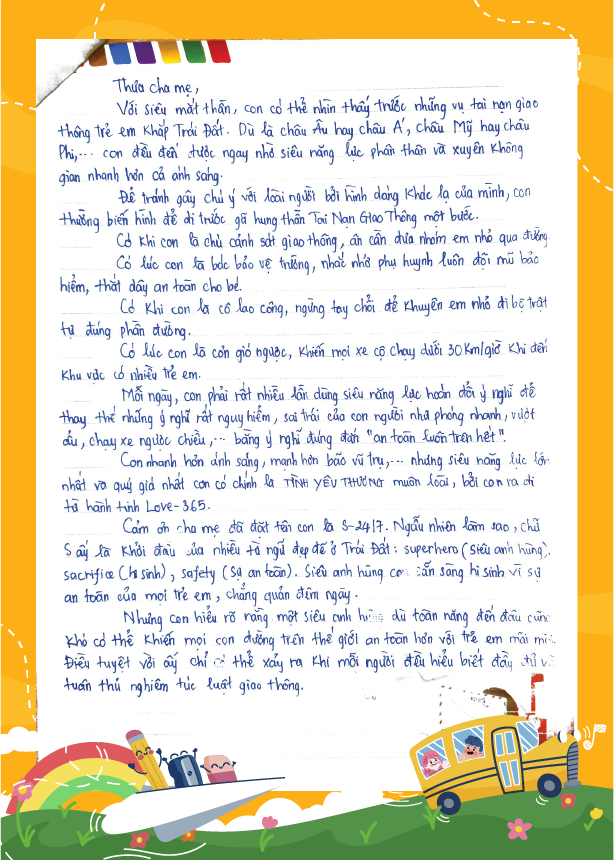 Thưa cha mẹ,
Với siêu mắt thần, con có thể nhìn thấy trước những vụ tai nạn giao
thông trẻ em khắp Trái Đất. Dù là châu Âu hay châu Á, châu Mỹ hay châu
Phi,... con đều đến được ngay nhờ siêu năng lực phân thân và xuyên không
gian nhanh hơn cả ánh sáng.
Để tránh gây chú ý với loài người bởi hình dáng khác lạ của mình, con
thường biến hình để đi trước gã hung thần Tai Nạn Giao Thông một bước.
Có khi con là chú cảnh sát giao thông, ân cần đưa nhóm em nhỏ qua đường.
Có lúc con là bác bảo vệ trường, nhắc nhở phụ huynh luôn đội mũ bảo
hiểm, thắt dây an toàn cho bé.
Có khi con là cô lao công, ngừng tay chổi để khuyên em nhỏ đi bộ trật
tự đúng phần đường.
Có lúc con là cơn gió ngược, khiến mọi xe cộ chạy dưới 30km/giờ khi đến
khu vực có nhiều trẻ em.
Mỗi ngày, con phải rất nhiều lần dùng siêu năng lực hoán đổi ý nghĩ để
thay thế những ý nghĩ rất nguy hiểm, sai trái của con người như phóng nhanh, vượt
ẩu, chạy xe ngược chiều,... bằng ý nghĩ đúng đắn "an toàn luôn trên hết".
Con nhanh hơn ánh sáng, mạnh hơn bão vũ trụ,... nhưng siêu năng lực lớn
nhất và quý giá nhất con có chính là TÌNH YÊU THƯƠNG muôn loài, bởi con ra đi
từ hành tinh Love-365.
Cảm ơn cha mẹ đã đặt tên con là S-24/7. Ngẫu nhiên làm sao, chữ
S ấy là khởi đầu của nhiều từ ngữ đẹp đẽ ở Trái Đất: superhero (siêu anh hùng),
sacrifice (hi sinh), safety (sự an toàn). Siêu anh hùng con sẵn sàng hi sinh vì sự
an toàn của mọi trẻ em, chẳng quản đêm ngày.
Nhưng con hiểu rõ rằng một siêu anh hùng dù toàn năng đến đâu cũng
khó có thể khiến mọi con đường trên thế giới an toàn hơn với trẻ em mãi mãi.
Điều tuyệt vời ấy chỉ có thể xảy ra khi mỗi người đều hiểu biết đầy đủ và
tuân thủ nghiêm túc luật giao thông.